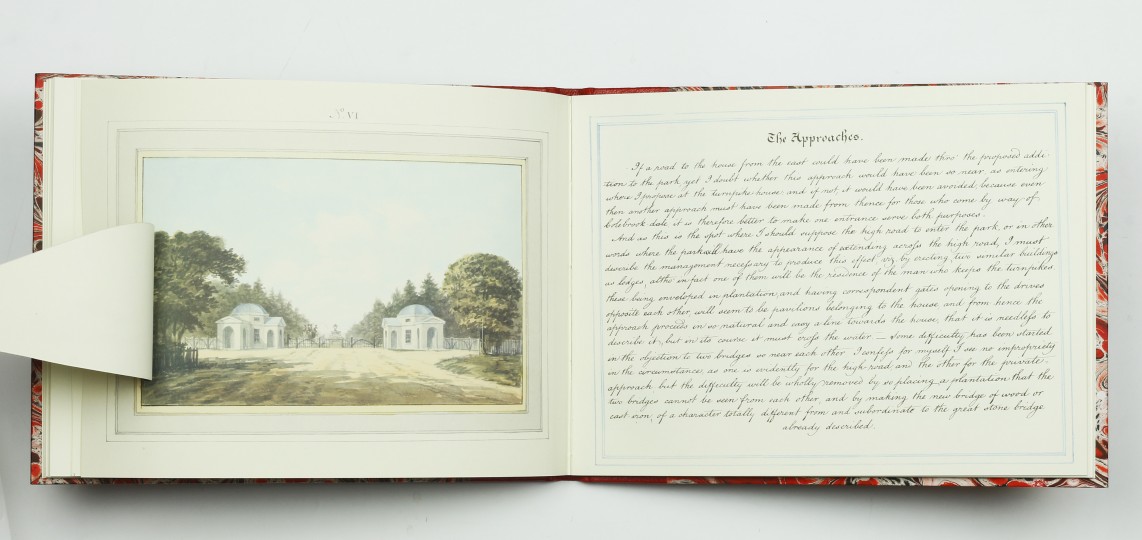 No VI
The Approaches.
If a road to the house from the east could have been made thro' the proposed addi-
tion to the park, yet I doubt whether this approach would have been so near, as entering
where I propose at the turnpike house; and if not, it would have been avoided, because even
then another approach must have been made from thence for those who come by way of
Colebrook dale, it is therefore better to make one entrance serve both purposes.
And as this is the spot where I should suppose the high road to enter the park, or in other
words where the park will have the appearance of extending across the high road, I must
describe the management necessary to produce this effect, viz. by erecting two similar buildings
as lodges, altho in fact one of them will be the residence of the man who keeps the turnpike,
these being enveloped in plantation, and having correspondent gates opening to the drives
opposite each other, will seem to be pavilions belonging to the house, and from hence the
approach proceeds in so natural and easy a line towards the house, that it is needless to
describe it, but in its course it must cross the water — Some difficulty has been started
in the objection to two bridges so near each other. I confess for myself I see no impropriety
in the circumstance, as one is evidently for the high road and the other for the private
approach, but the difficulty will be wholly removed by so placing a plantation that the
two bridges cannot be seen from each other, and by making the new bridge of wood or
cast iron, of a character totally different from and subordinate to the great stone bridge
already described.